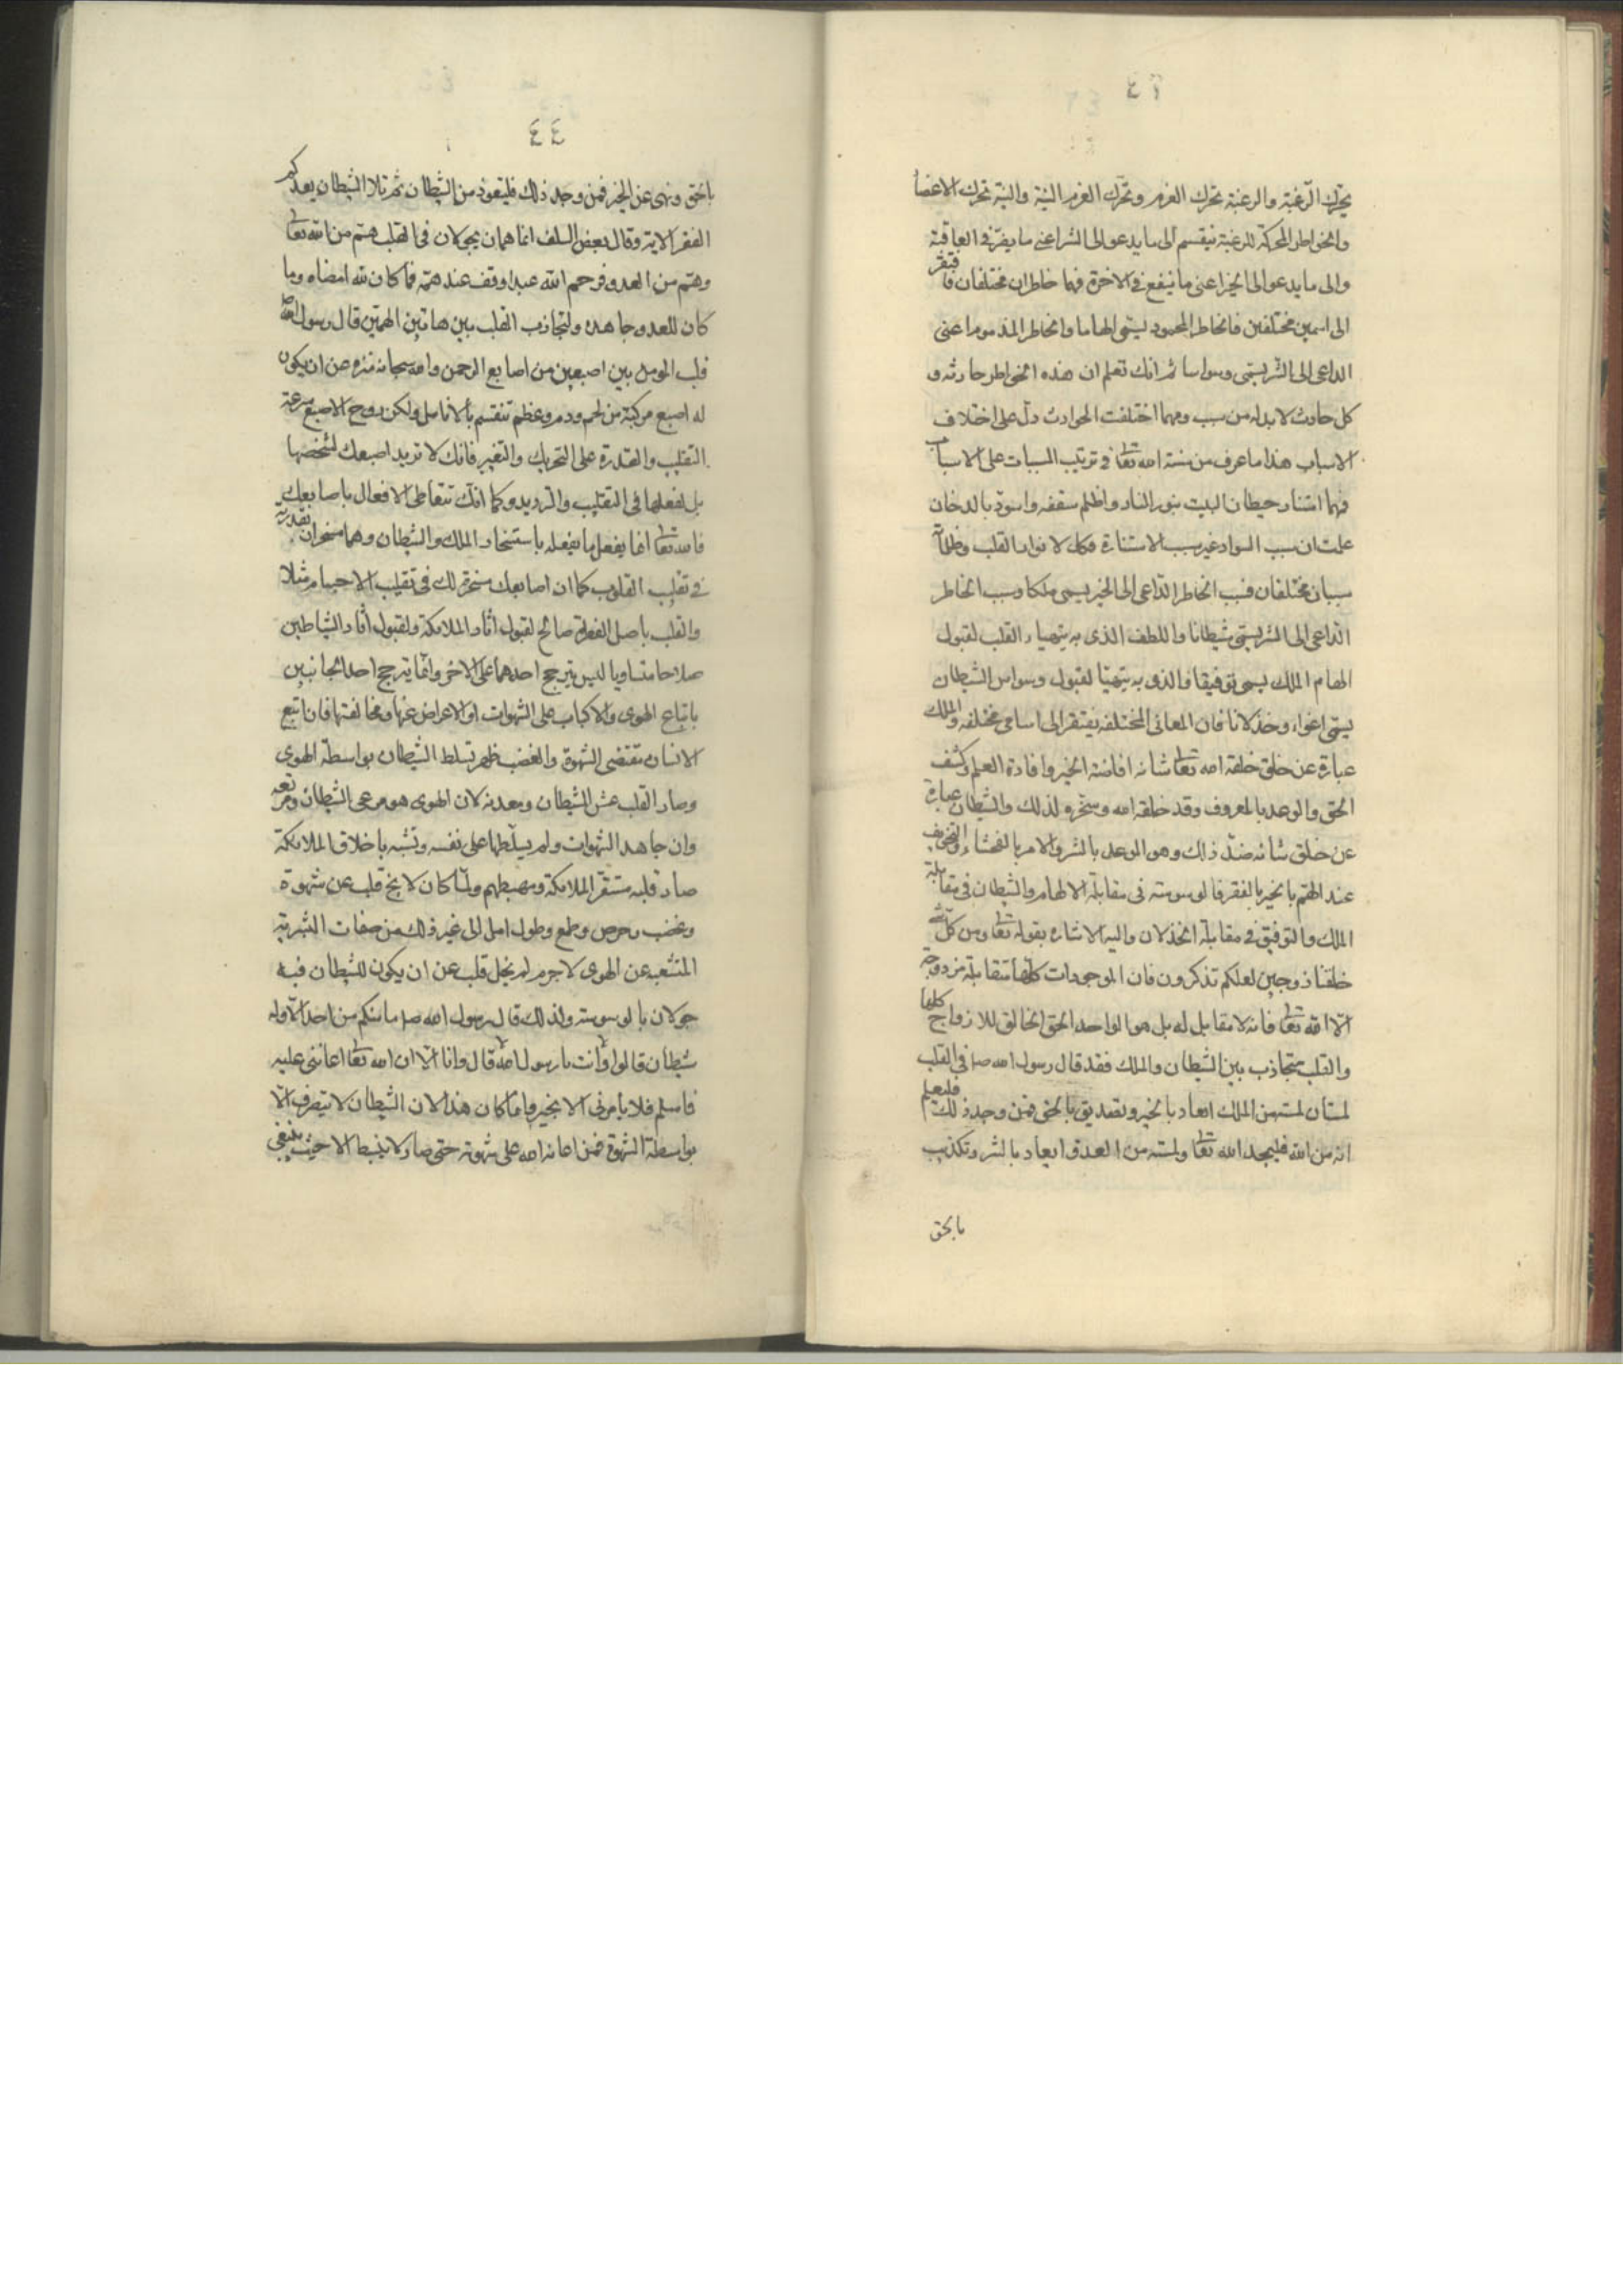 ٤٣
يحرك الرغبة والرغبة تحرك العزم وتحرك العزم النية والنية تحرك الاعضا
والخواطر المحركة للرغبة ينقسم الى ما يدعو الى الشر اعنى ما يضر في العاقبة
والى ما يدعو الى الخير اعنى ما ينفع في الاخرة فهما خاطران مختلفان فافتقر
الى اسمين مختلفين فالخاطر المحمود يسمى الهاما والخاطر المذموم اعنى
الداعى الى الشر يسمى وسواسا ثم انك تعلم ان هذه الخواطر حادثه و
كل حادث لا بد له من سبب ومهما اختلفت الحوادث دل على اختلاف
الاسباب هذا ما عرف من سنة الله تعا في ترتيب المسببات على الاسباب
فهما استنار حيطان البيت بنور النار واظلم سقفه واسود بالدخان
علمت ان سبب السواد غير سبب الاستنارة فكك لانوار القلب وظلماته
سببان مختلفان فسبب الخاطر الداعى الى الخير يسمى ملكا وسبب الخاطر
الداعى الى الشر يسمى شيطانا واللطف الذى به يتهياء القلب لقبول
الهام الملك يسمى توفيقا والذى به يتهيئا لقبول وسواس الشيطان
يسمى اغواء وخذلانا فان المعانى المختلفه يفتقر الى اسامى مختلفه والملك
عبارة عن خلق خلقه الله تعا شانه افاضة الخير وافادة العلم وكشف
الحق والوعد بالمعروف وقد خلقه الله وسخره لذلك والشيطان عبارة
عن خلق شانه ضد ذلك وهو الوعد بالشر والامر بالفحشاء والتخويف
عند الهم بالخير بالفقر فالوسوسه فى مقابلة الالهام والشيطان فى مقابلة
الملك والتوفيق في مقابلة الخذلان واليه الاشاره بقوله تعا ومن كل شئ
خلقنا زوجين لعلكم تذكرون فان الموجودات كلها متقابلة مزدوجة
الا الله تعا فانه لا مقابل له بل هو الواحد الحق الخالق للازواج كلها
والقلب متجاذب بين الشيطان والملك فقد قال رسول الله صلى فى القلب
لمتان لمة من الملك ايعاد بالخير وتصديق بالحق فمن وجد ذلك فليعلم
انه من الله فليحمد الله تعا ولمة من العدو ايعاد بالشر وتكذيب
بالحق
٤٤
بالحق ونهى عن الخير فمن وجد ذلك فليتعوذ من الشيطان ثم تلا الشيطان يعدكم
الفقر الاية وقال بعض السلف انما هما همان يجولان فى القلب هم من الله تعا
وهم من العدو فرحم الله عبدا وقف عند همه فما كان لله امضاه وما
كان للعدو جاهده ولتجاذب القلب بين هاتين الهمتين قال رسول الله
قلب المومن بين اصبعين من اصابع الرحمن والله سبحانه منزه عن ان يكون
له اصبع مركبة من لحم ودم وعظم تنقسم بالانامل ولكن روح الاصبع سرعة
التقليب والقدرة على التحريك والتغيير فانك لا تريد اصبعك لشخصها
بل لفعلها فى التقليب والترديد وكما انك تتعاطى الافعال باصابعك
فالله تعا انما يفعل ما يفعله باستسخار الملك والشيطان وهما مسخران بقدرته
في تقليب القلوب كما ان اصابعك مسخرة لك فى تقليب الاجسام مثلا
والقلب باصل الفطرة صالح لقبول اثار الملائكة ولقبول اثار الشياطين
صلاحا متساويا ليس يترجح احدهما على الاخر وانما يترجح احد الجانبين
باتباع الهوى والاكباب على الشهوات او الاعراض عنها ومخالفتها فان اتبع
الانسان مقتضى الشهوة والغضب ظهر تسلط الشيطان بواسطة الهوى
وصار القلب عش الشيطان ومعدنه لان الهوى هو مرعى الشيطان ومرتعه
وان جاهد الشهوات ولم يسلطها على نفسه وتشبه باخلاق الملائكة
صار قلبه مستقر الملائكة ومهبطهم ولما كان لا يخ قلب عن شهوة
وغضب وحرص وطمع وطول امل الى غير ذلك من صفات البشرية
المتشعبه عن الهوى لا جرم لم يخل قلب عن ان يكون للشيطان فيه
جولان بالوسوسه ولذلك قال رسول الله صلى ما منكم من احد الا وله
شيطان قالوا وانت يا رسول الله قال وانا الا ان الله تعا اعاننى عليه
فاسلم فلا يامرنى الا بخير وانما كان هذا لان الشيطان لا يتصرف الا
بواسطة الشهوة فمن اعانه الله على شهوته حتى صار لا ينبسط الا حيث ينبغى